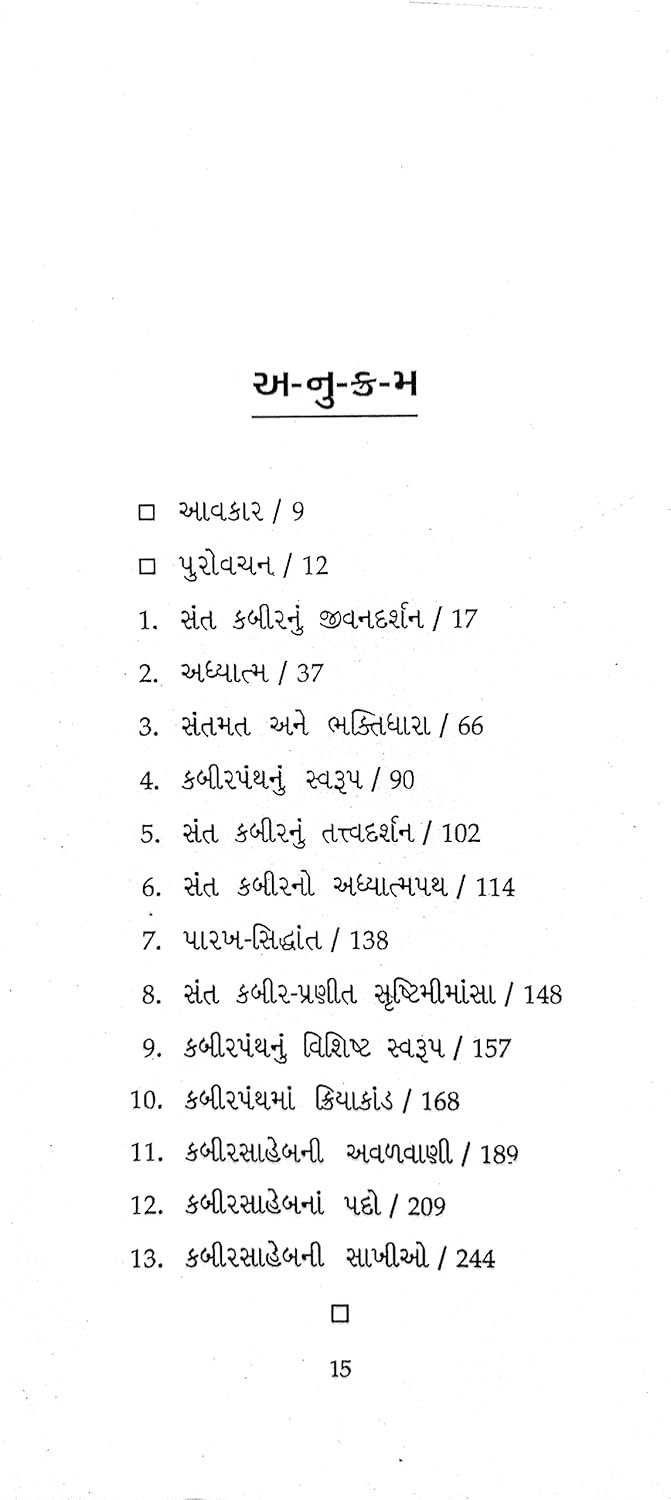 અ-નુ-ક્ર-મ
□ આવકાર / 9
□ પુરોવચન / 12
1. સંત કબીરનું જીવનદર્શન / 17
2. અધ્યાત્મ / 37
3. સંતમત અને ભક્તિધારા / 66
4. કબીરપંથનું સ્વરૂપ / 90
5. સંત કબીરનું તત્ત્વદર્શન / 102
6. સંત કબીરનો અધ્યાત્મપથ / 114
7. પારખ-સિદ્ધાંત / 138
8. સંત કબીર-પ્રણીત સૃષ્ટિમીમાંસા / 148
9. કબીરપંથનું વિશિષ્ટ સ્વરૂપ / 157
10. કબીરપંથમાં ક્રિયાકાંડ / 168
11. કબીરસાહેબની અવળવાણી / 189
12. કબીરસાહેબનાં પદો / 209
13. કબીરસાહેબની સાખીઓ / 244
□
15